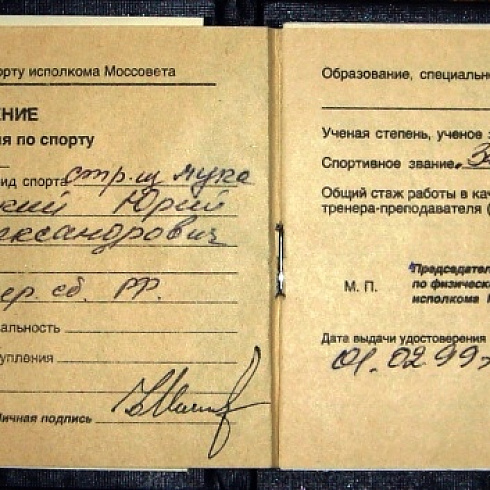 орту исполкома Моссовета
ЕНИЕ
ля по спорту
вид спорта стр. из лука
ский Юрий
лександрович
ер. сб. РФ.
альность
тупления
Личная подпись
Образование, специально
Ученая степень, ученое з
Спортивное звание. За
Общий стаж работы в кач
тренера-преподавателя (
М. П.
Председател
по физическ
исполкома
Дата выдачи удостоверения
01.02.99г